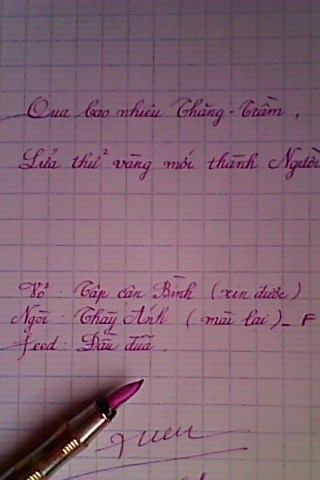 Qua bao nhiêu Thăng - Trầm ,
Lửa thử vàng mới thành Người
Vở : Tập căn Bình (xin được)
Ngòi : Thầy Ánh (mài lại) - F
feed : Dầu đũa .